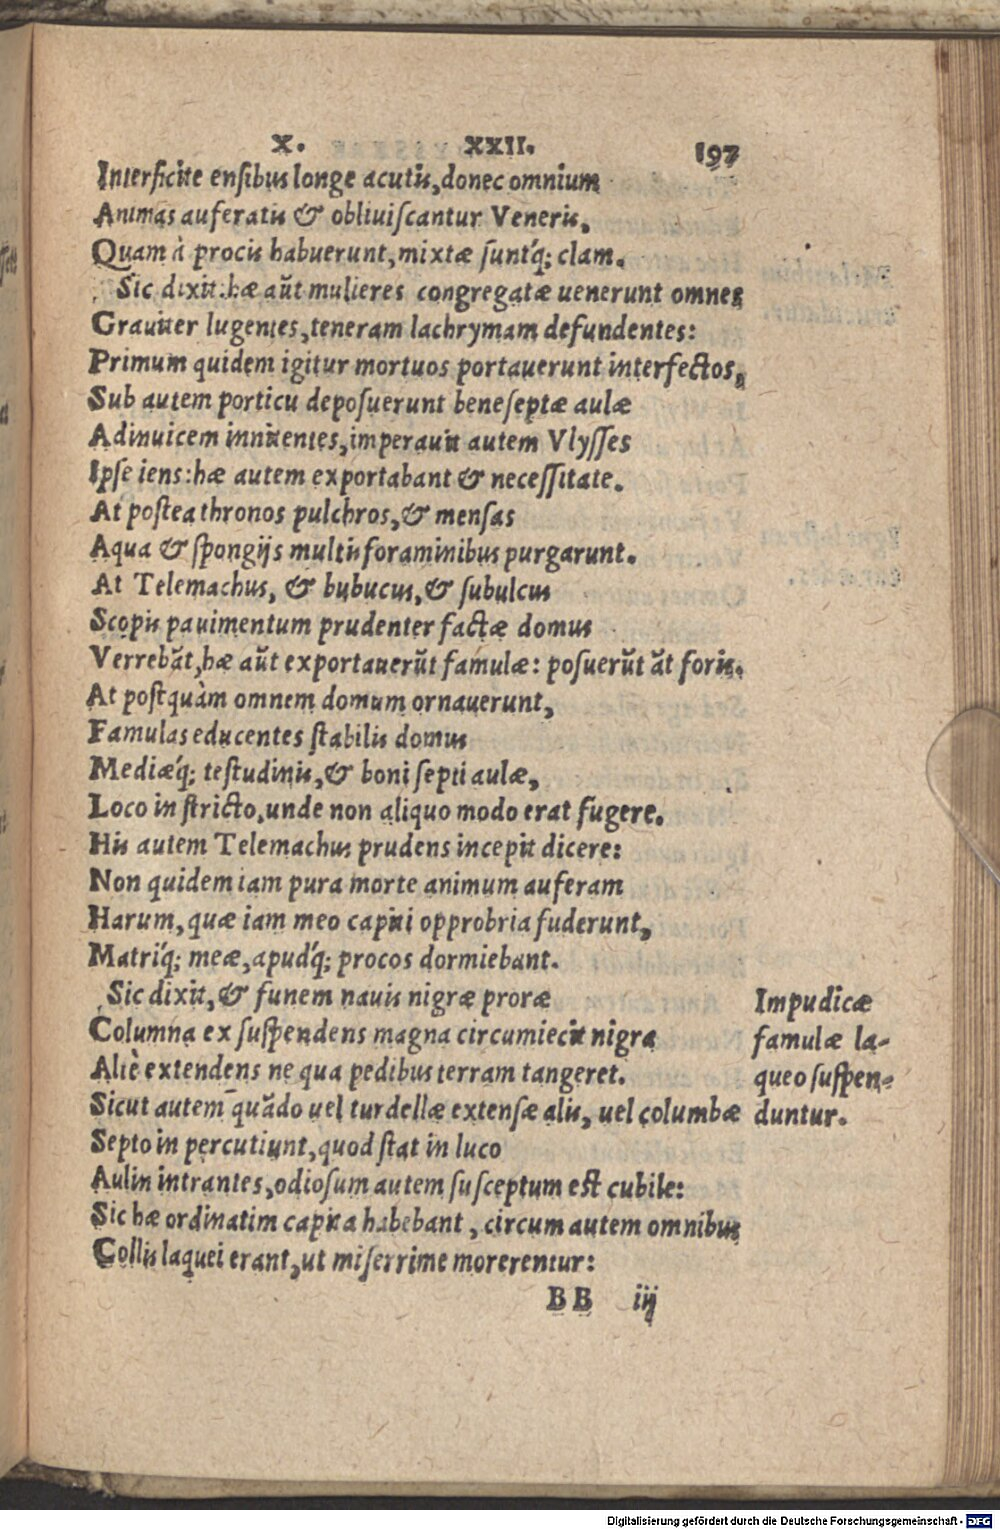 X. XXII. 197
Interficite ensibus longe acutis, donec omnium
Animas auferatis & obliuiscantur Veneris,
Quam à procis habuerunt, mixtæ suntq́; clam.
Sic dixit: hæ aũt mulieres congregatæ uenerunt omnes
Grauiter lugentes, teneram lachrymam defundentes:
Primum quidem igitur mortuos portauerunt interfectos,
Sub autem porticu deposuerunt beneseptæ aulæ
Adinuicem innitentes, imperauit autem Vlysses
Ipse iens: hæ autem exportabant & necessitate.
At postea thronos pulchros, & mensas
Aqua & spongijs multis foraminibus purgarunt.
At Telemachus, & bubucus, & subulcus
Scopis pauimentum prudenter factæ domus
Verrebãt, hæ aũt exportauerũt famulæ: posuerũt ãt foris.
At postquàm omnem domum ornauerunt,
Famulas educentes stabilis domus
Mediæq́; testudinis, & boni septi aulæ,
Loco in stricto, unde non aliquo modo erat fugere.
His autem Telemachus prudens incepit dicere:
Non quidem iam pura morte animum auferam
Harum, quæ iam meo capiti opprobria fuderunt,
Matriq́; meæ, apudq́; procos dormiebant.
Sic dixit, & funem nauis nigræ proræ
Columna ex suspendens magna circumiecit nigra
Altè extendens ne qua pedibus terram tangeret.
Sicut autem quãdo uel turdellæ extensæ alis, uel columbæ
Septo in percutiunt, quod stat in luco
Aulin intrantes, odiosum autem susceptum est cubile:
Sic hæ ordinatim capita habebant, circum autem omnibus
Collis laquei erant, ut miserrime morerentur:
BB iij
Impudicæ
famulæ la-
queo suspen-
duntur.
Digitalisierung gefördert durch die Deutsche Forschungsgemeinschaft - DFG